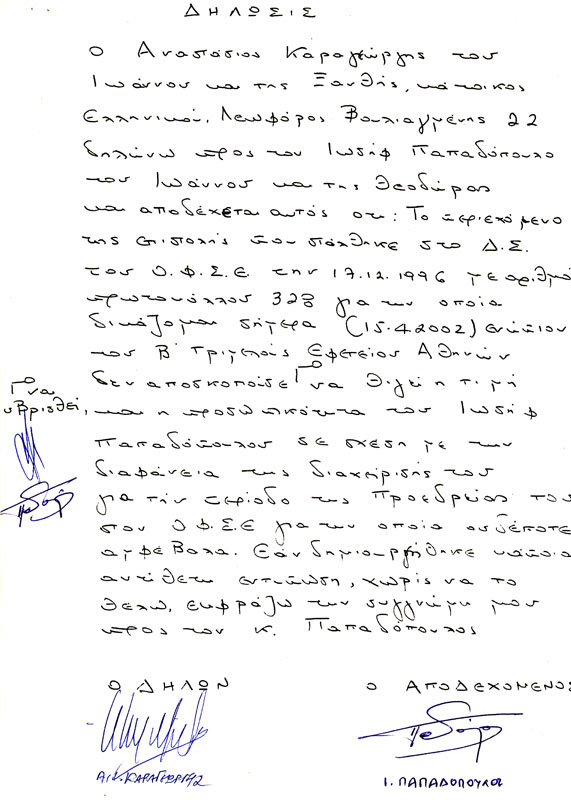 ΔΗΛΩΣΙΣ
Ο Αναστάσιος Καραγεώργης του
Ιωάννου και της Ξανθής, κάτοικος
Ελληνικού, Λεωφόρος Βουλιαγμένης 22
δηλώνω προς τον Ιωσήφ Παπαδόπουλο
του Ιωάννου και της Θεοδώρας
και αποδέχεται αυτός οτι: Το περιεχόμενο
της επιστολής που στάλθηκε στο Δ.Σ.
του Ο.Φ.Σ.Ε την 17.12.1996 με αριθμό
πρωτοκόλλου 328 για την οποία
δικάζομαι σήμερα (15.4.2002) ενώπιον
του Β΄ Τριμελούς Εφετείου Αθηνών
δεν αποσκοπούσε Γ να θιγεί η τιμή
Γ να
υβρισθεί,
και η προσωπικότητα του Ιωσήφ
Παπαδόπουλου σε σχέση με την
διαφάνεια της διαχείρισής του
για την περίοδο της Προεδρείας του
στον Ο.Φ.Σ.Ε για την οποία ουδέποτε
αμφέβαλα. Εάν δημιουργήθηκε κάποια
αντίθετη εντύπωση, χωρίς να το
θέλω, εκφράζω την συγγνώμη μου
προς τον κ. Παπαδόπουλος
Ο ΔΗΛΩΝ
Ο ΑΠΟΔΕΧΟΜΕΝΟΣ
ΚΑΡΑΓΕΩΡΓΗΣ
Ι. ΠΑΠΑΔΟΠΟΥΛΟΣ